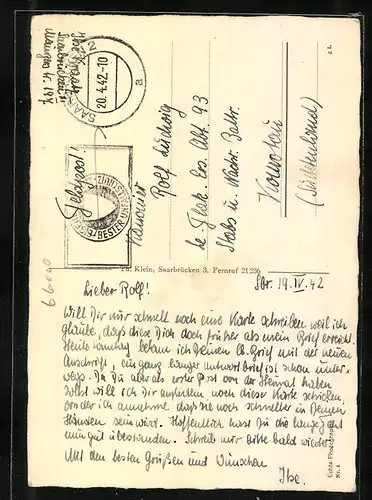 Feldpost!
SAARBRÜCKEN 2
20.4.42-10
a
BESTER
Kanonier
Rolf Ludwig
le. Flak. Ers. Abt. 93
Stabs u. Nachr. Battr.
Komotau
(Sudetenland)
Ph. Klein, Saarbrücken 3. Fernruf 21 236
Echte Photographie
Sbr. 19.IV.42
Lieber Rolf!
Will Dir nur schnell noch eine Karte schreiben weil ich
glaube, dass diese Dich doch früher als mein Brief erreicht.
Heute bekam ich Deinen lb. Brief mit der neuen
Anschrift, ein ganz langer Antwortbrief ist schon unter-
wegs. Da Du aber als erster Post von der Heimat haben
sollst will ich Dir noch diese Karte schicken,
von der ich annehme dass sie noch schneller in Deinen
Händen sein wird. Hoffentlich hast Du die lange Fahrt
nun gut überstanden. Schreib mir bitte bald wieder.
Mit den besten Grüßen und Wünschen
Ilse.